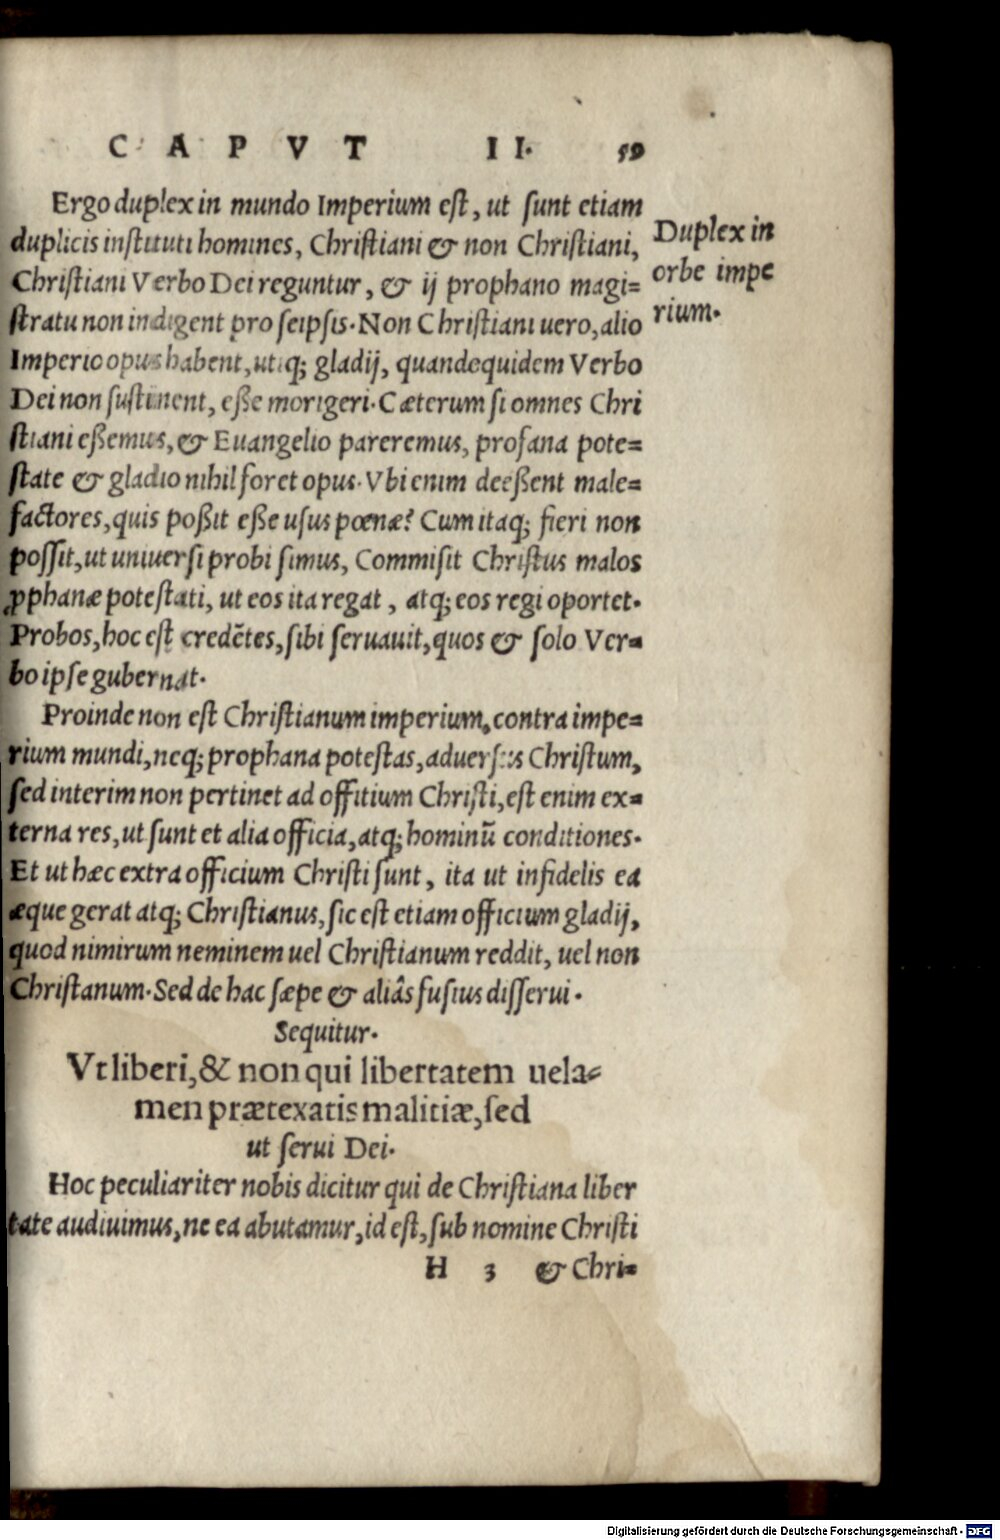 CAPVT II. 59
Ergo duplex in mundo Imperium est, ut sunt etiam
duplicis instituti homines, Christiani & non Christiani,
Christiani Verbo Dei reguntur, & ij prophano magi=
stratu non indigent pro seipsis. Non Christiani uero, alio
Imperio opus habent, utiq; gladij, quandoquidem Verbo
Dei non sustinent, eße morigeri. Cæterum si omnes Chri
stiani eßemus, & Euangelio pareremus, profana pote=
state & gladio nihil foret opus. Vbi enim deeßent male=
factores, quis poßit eße usus pœnæ? Cum itaq; fieri non
possit, ut uniuersi probi simus, Commisit Christus malos
ꝓphanæ potestati, ut eos ita regat, atq; eos regi oportet.
Probos, hoc est credẽtes, sibi seruauit, quos & solo Ver=
bo ipse gubernat.
Duplex in
orbe impe
rium.
Proinde non est Christianum imperium, contra impe=
rium mundi, neq; prophana potestas, aduersus Christum,
sed interim non pertinet ad offitium Christi, est enim ex=
terna res, ut sunt et alia officia, atq; hominũ conditiones.
Et ut hæc extra officium Christi sunt, ita ut infidelis ea
æque gerat atq; Christianus, sic est etiam officium gladij,
quod nimirum neminem uel Christianum reddit, uel non
Christanum. Sed de hac sæpe & aliâs fusius disserui.
Sequitur.
Vt liberi, & non qui libertatem uela=
men prætexatis malitiæ, sed
ut serui Dei.
Hoc peculiariter nobis dicitur qui de Christiana liber
tate audiuimus, ne ea abutamur, id est, sub nomine Christi
H 3 & Chri=
Digitalisierung gefördert durch die Deutsche Forschungsgemeinschaft - DFG